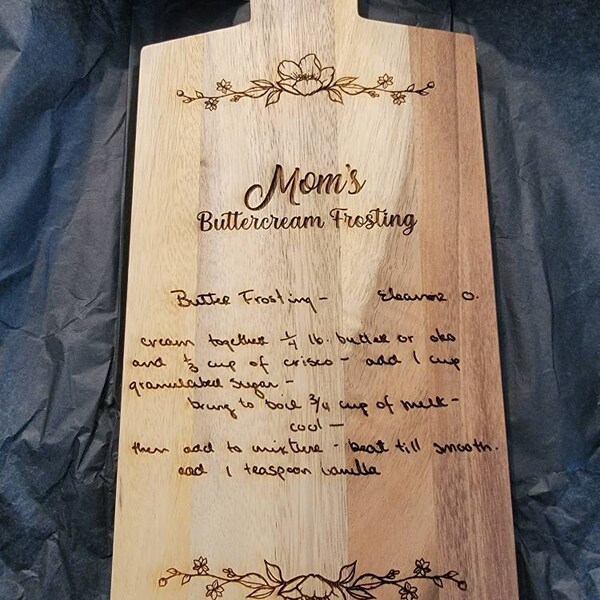 Mom's
Buttercream Frosting
Butter Frosting - Eleanor O.
cream together 1/4 lb. butter or oleo
and 1/3 cup of crisco - add 1 cup
granulated sugar -
bring to boil 3/4 cup of milk -
cool -
then add to mixture - beat till smooth.
add 1 teaspoon vanilla